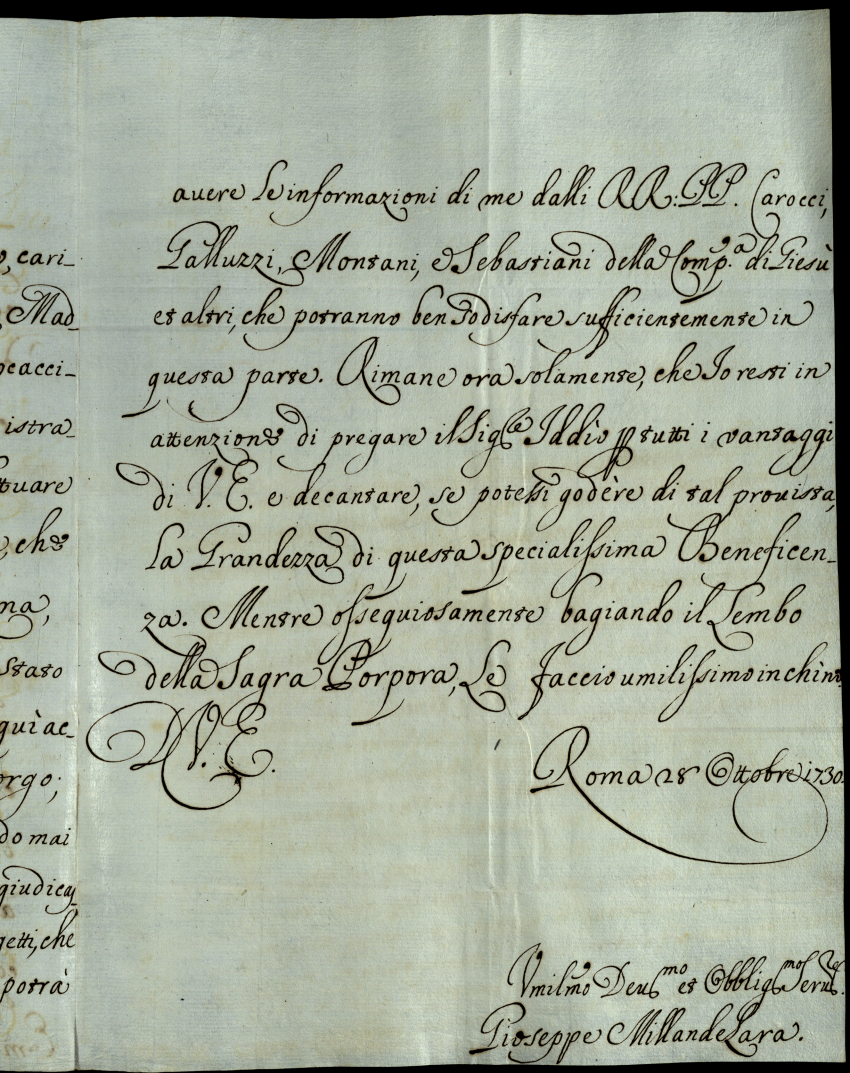 auere le informazioni di me dalli RR: PP. Carocci,
Galluzzi, Montani, e Sebastiani della Comp.ª di Giesù
et altri, che potranno ben sodisfare sufficientemente in
questa parte. Rimane ora solamente, che Io resti in
attenzione di pregare il Sig.re Iddio p tutti i vantaggi
di V. E. e decantare, se potessi godère di tal prouista,
la Grandezza di questa specialissima Beneficen-
za. Mentre ossequiosamente bagiando il Lembo
della Sagra Porpora, Le faccio umilissimo inchino
D V. E.
Roma 28 Ottobre 1730.
Vmilmo Deu.mo et Obblig.mo Seru.re
Gioseppe Millan de Lara.
o, cari-
Mad
cacci-
istra-
tuare
che
na,
stato
quì ac-
orgo;
do mai
giudica-
getti, che
potrà